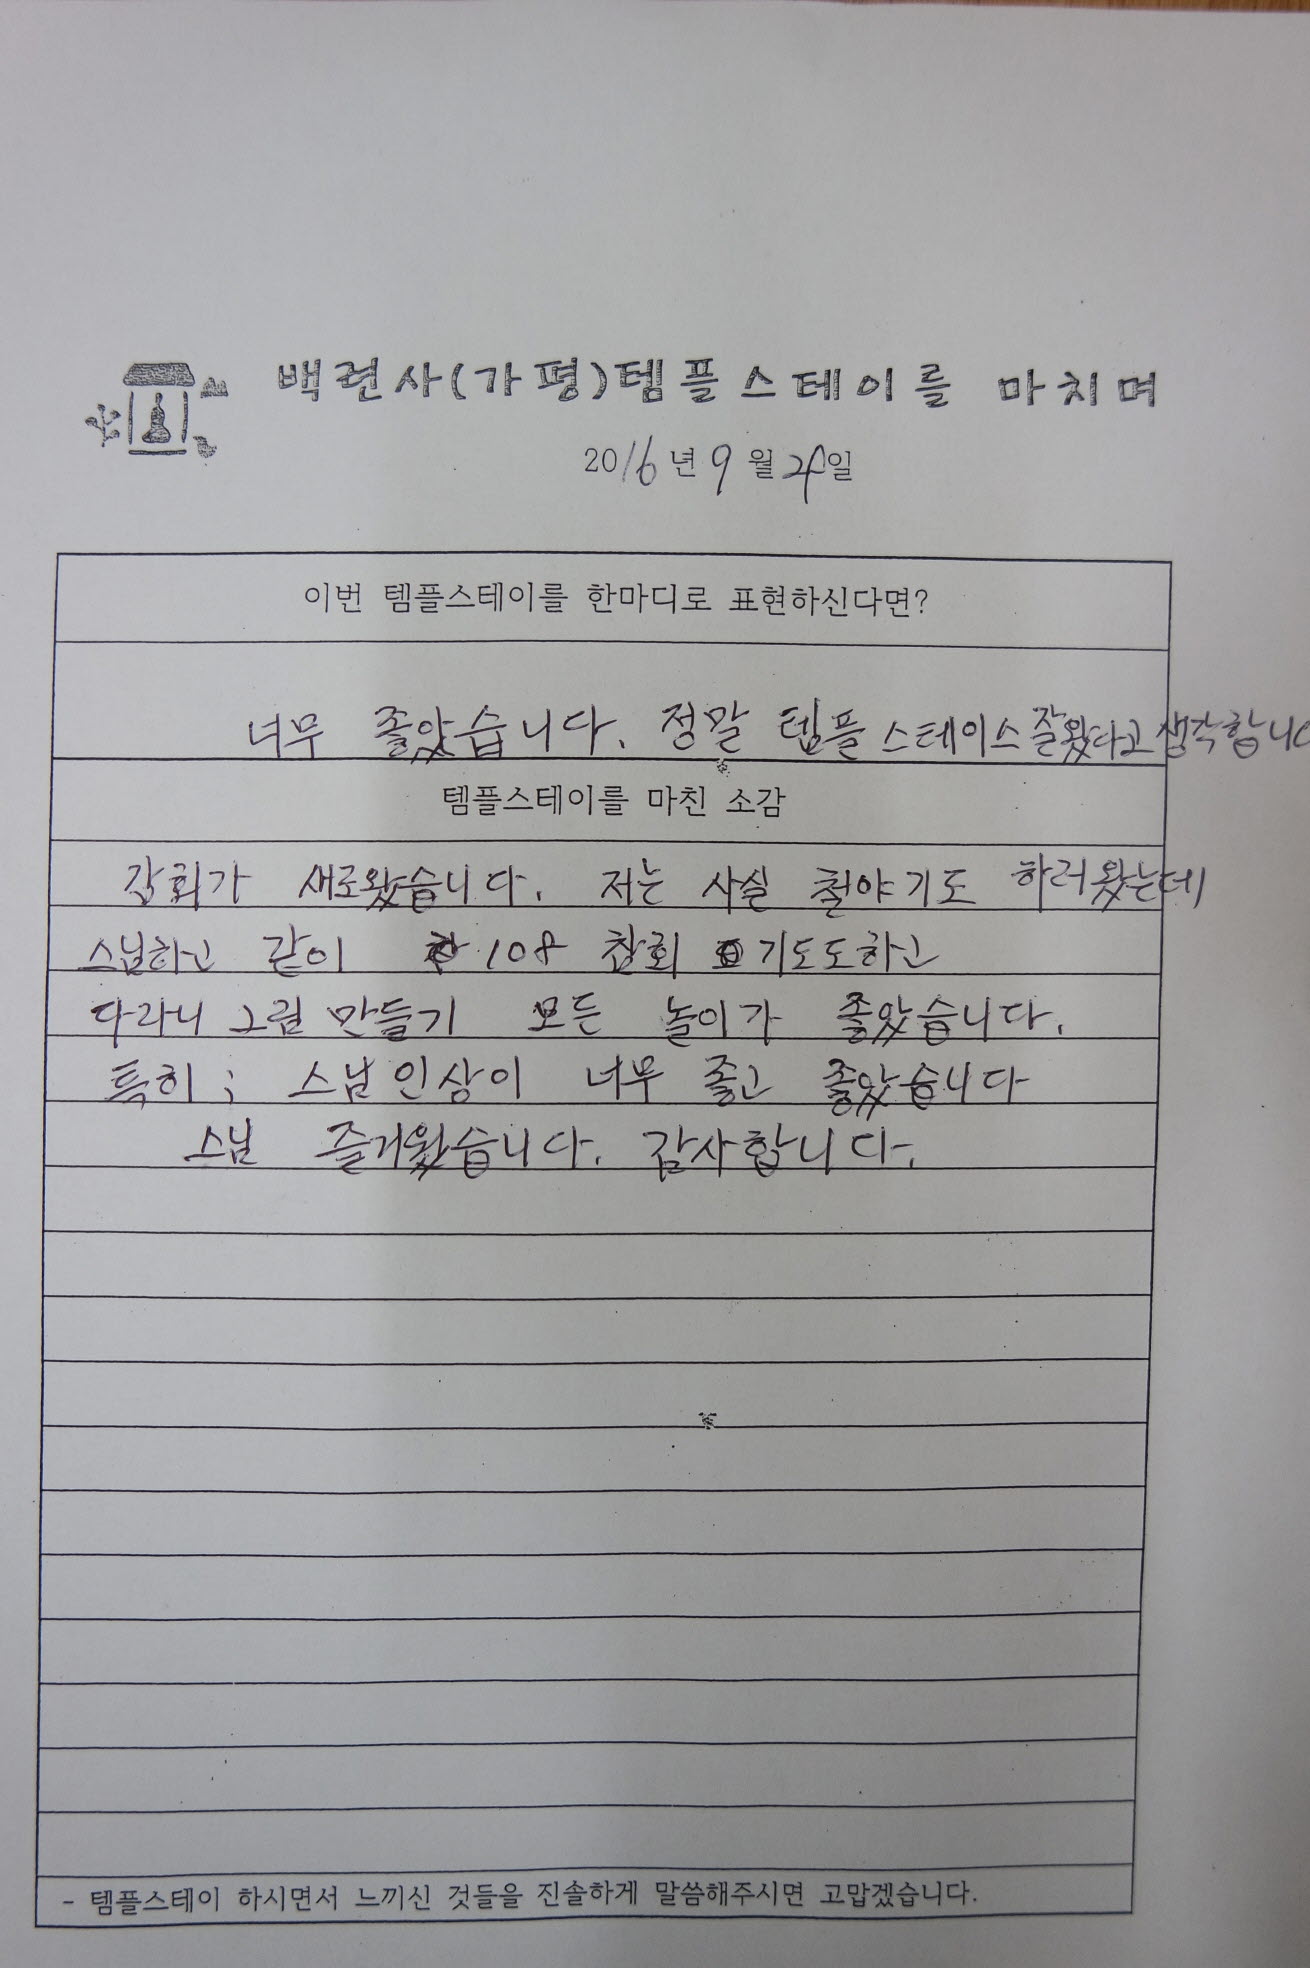 백련사(가평)템플스테이를 마치며
2016년 9월 24일
이번 템플스테이를 한마디로 표현하신다면?
너무 좋았습니다. 정말 템플스테이스 잘왔다고 생각합니다
템플스테이를 마친 소감
감회가 새로왔습니다. 저는 사실 철야기도 하러왔는데
스님하고 같이 108 참회 기도도하고
다라니 그림 만들기 모든 놀이가 좋았습니다.
특히; 스님인상이 너무 좋고 좋았습니다
스님 즐거웠습니다. 감사합니다.
- 템플스테이 하시면서 느끼신 것들을 진솔하게 말씀해주시면 고맙겠습니다.